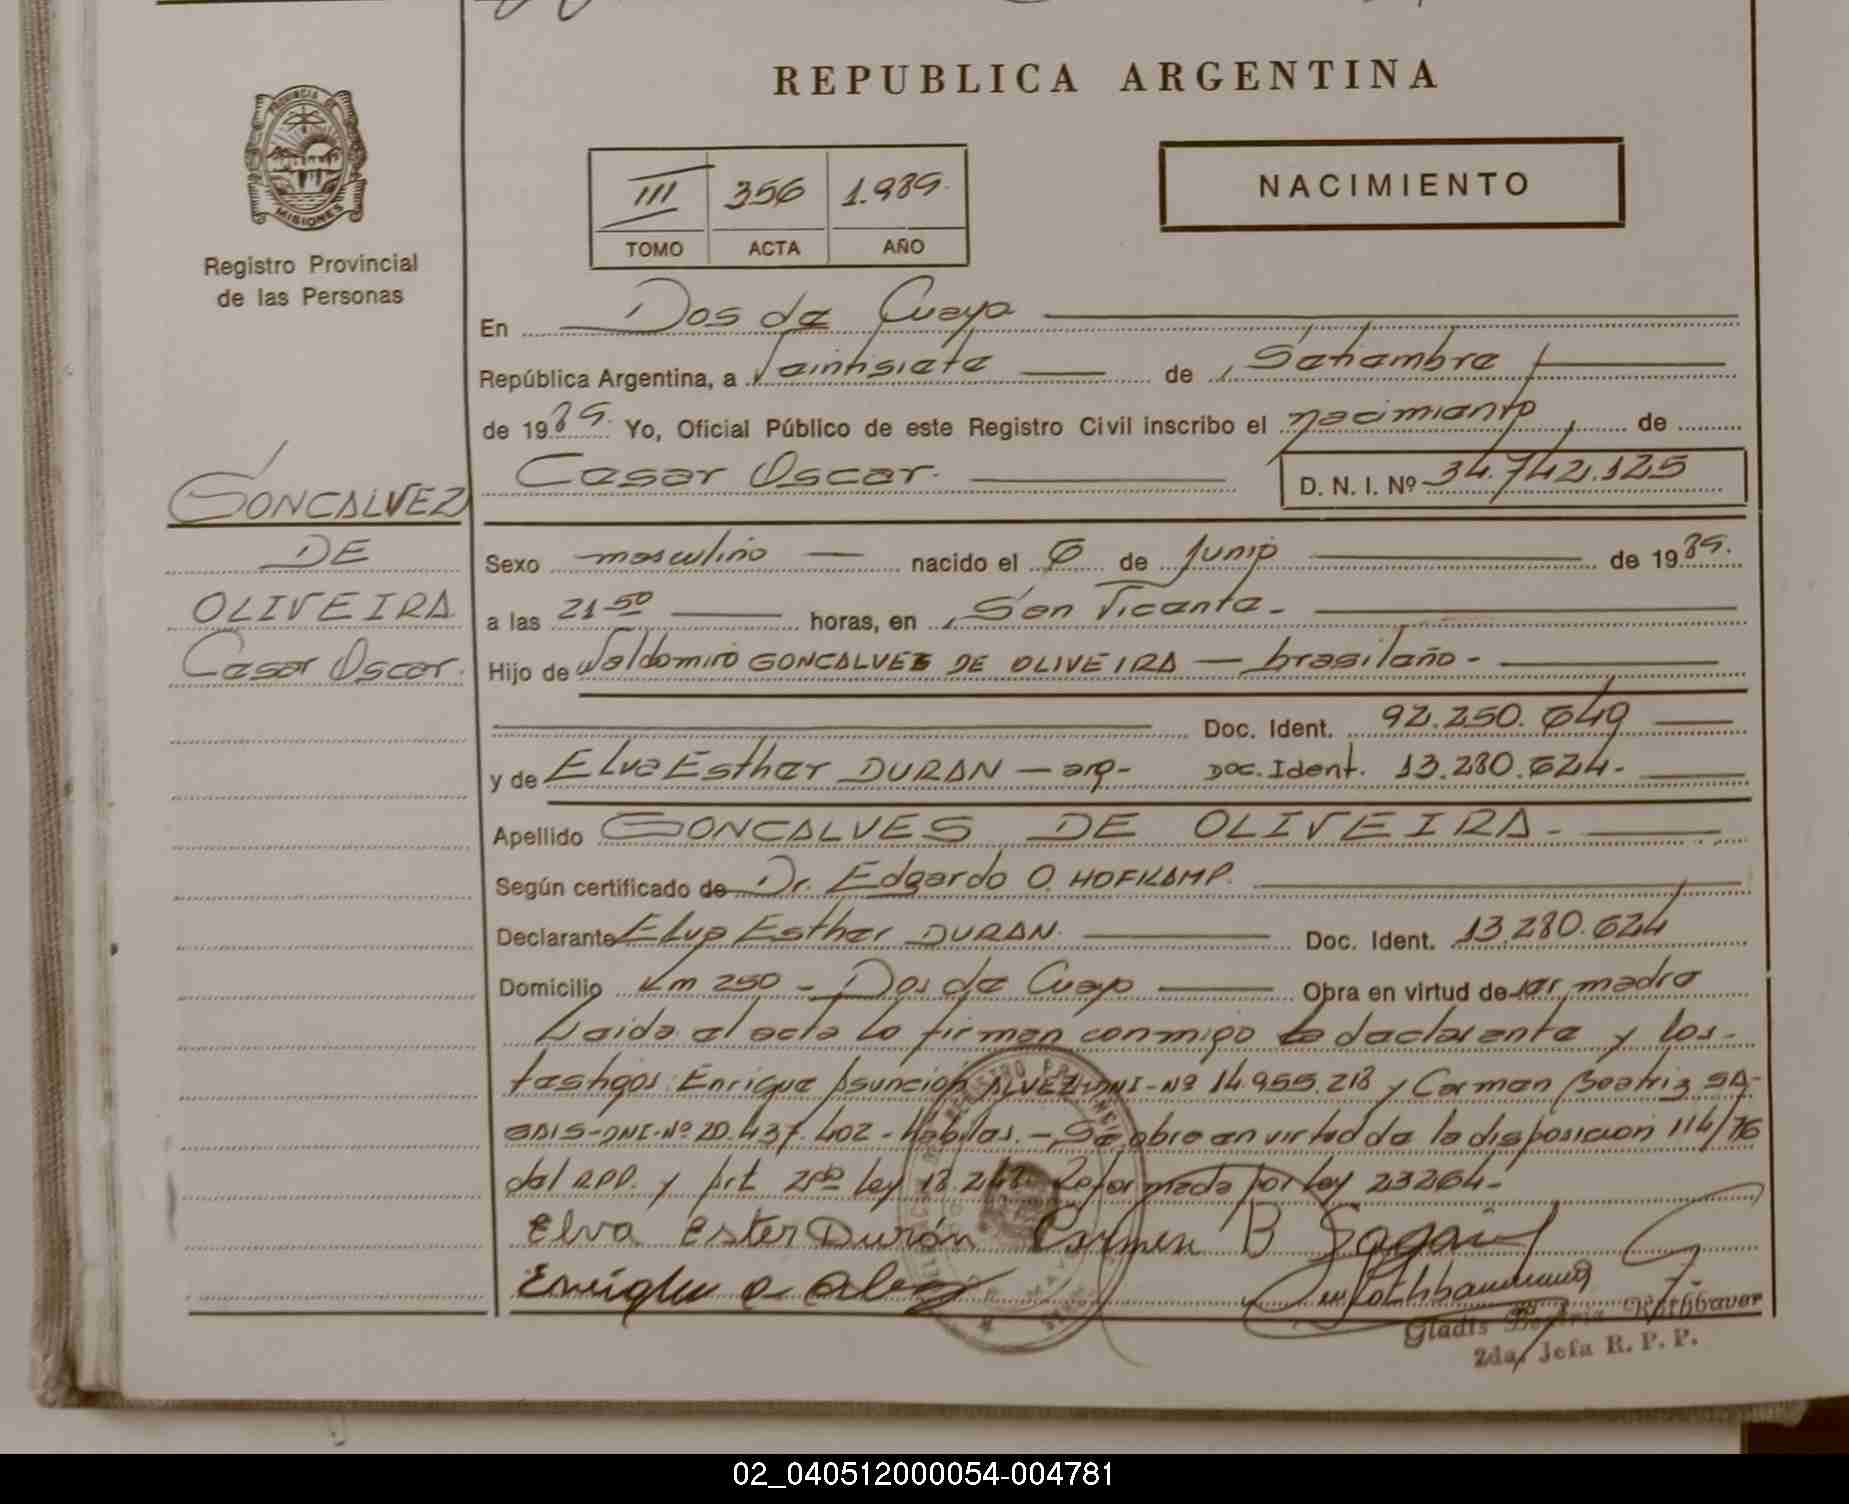 REPUBLICA ARGENTINA
PROVINCIA DE
MISIONES
Registro Provincial
de las Personas
III 356 1.989.
TOMO ACTA AÑO
NACIMIENTO
En Dos de Mayo
República Argentina, a Veintisiete de Setiembre
de 1989. Yo, Oficial Público de este Registro Civil inscribo el nacimiento, de
Cesar Oscar. D. N. I. Nº 34.742.125
GONCALVEZ
DE
OLIVEIRA
Cesar Oscar.
Sexo masculino nacido el 6 de Junio de 1989.
a las 21-50 horas, en San Vicente-
Hijo de Waldomiro GONCALVES DE OLIVEIRA — brasileño-
Doc. Ident. 92.250.649
y de Elva Esther DURAN — arg- Doc. Ident. 13.280.624-
Apellido GONCALVES DE OLIVEIRA-
Según certificado de Dr. Edgardo O. HOFKAMP.
Declarante Elva Esther DURAN. Doc. Ident. 13.280.624
Domicilio Km 250 - Dos de Mayo Obra en virtud de ser madre
Leida el acta lo firman conmigo la declarante y los-
testigos: Enrique Asuncion ALVEZ-DNI-Nº 14.955.218 y Carmen Beatriz SA-
GAIS-DNI-Nº 20.437.402-Habiles.-Se obra en virtud de la disposicion 114/76
del R.P.P. y Art. 2do Ley 18.248 Reformada por Ley 23264-
Elva Ester Durán Carmen B
Enrique a
Gladis Beatriz Rothbauer
2da. Jefa R. P. P.
02_040512000054-004781